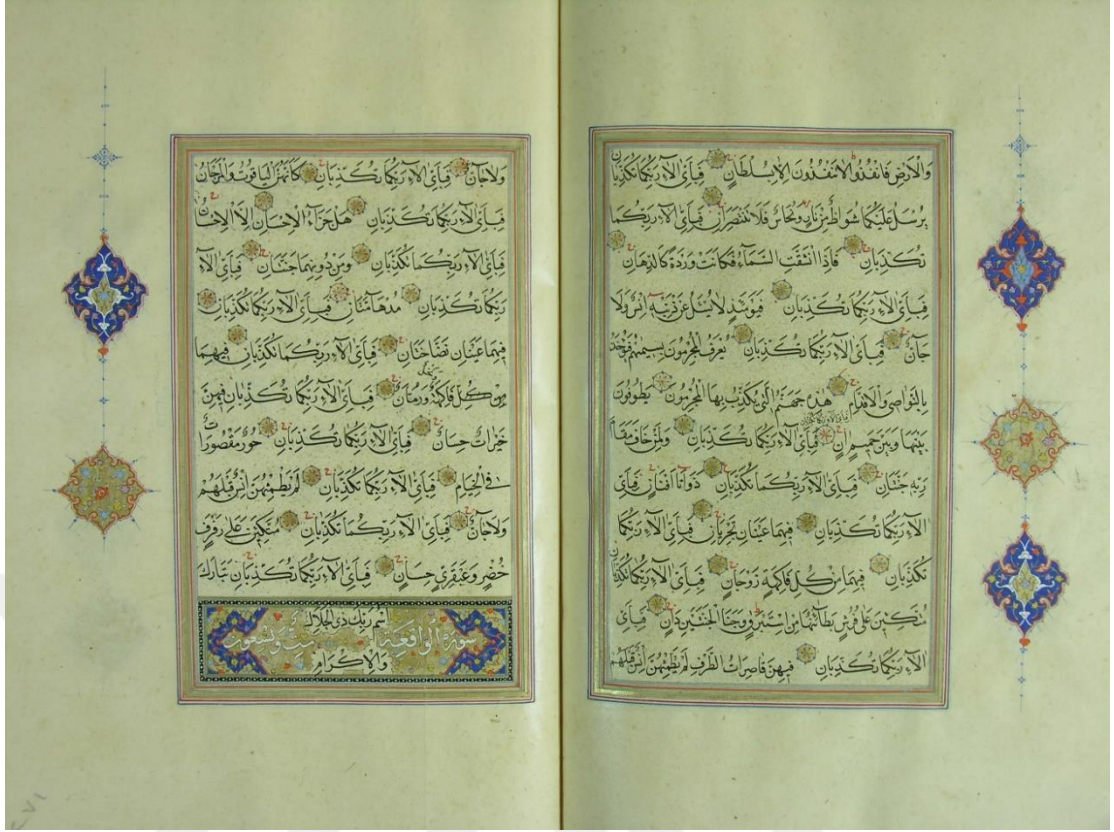 وَالْاَرْضِ فَانْفُذُوا لَا تَنْفُذُونَ اِلَّا بِسُلْطَانٍ فَبِاَيِّ اٰلَاءِ رَبِّكُمَا تُكَذِّبَانِ
يُرْسَلُ عَلَيْكُمَا شُوَاظٌ مِنْ نَارٍ وَنُحَاسٌ فَلَا تَنْتَصِرَانِ فَبِاَيِّ اٰلَاءِ رَبِّكُمَا
تُكَذِّبَانِ فَاِذَا انْشَقَّتِ السَّمَاءُ فَكَانَتْ وَرْدَةً كَالدِّهَانِ
فَبِاَيِّ اٰلَاءِ رَبِّكُمَا تُكَذِّبَانِ فَيَوْمَئِذٍ لَا يُسْئَلُ عَنْ ذَنْبِهِ اِنْسٌ وَلَا
جَانٌّ فَبِاَيِّ اٰلَاءِ رَبِّكُمَا تُكَذِّبَانِ يُعْرَفُ الْمُجْرِمُونَ بِسِيمٰهُمْ فَيُؤْخَذُ
بِالنَّوَاصِي وَالْاَقْدَامِ هٰذِهِ جَهَنَّمُ الَّتِي يُكَذِّبُ بِهَا الْمُجْرِمُونَ يَطُوفُونَ
فباي الاء ربكما تكذبان
بَيْنَهَا وَبَيْنَ حَمِيمٍ اٰنٍ فَبِاَيِّ اٰلَاءِ رَبِّكُمَا تُكَذِّبَانِ وَلِمَنْ خَافَ مَقَامَ
رَبِّهِ جَنَّتَانِ فَبِاَيِّ اٰلَاءِ رَبِّكُمَا تُكَذِّبَانِ ذَوَاتَا اَفْنَانٍ فَبِاَيِّ
اٰلَاءِ رَبِّكُمَا تُكَذِّبَانِ فِيهِمَا عَيْنَانِ تَجْرِيَانِ فَبِاَيِّ اٰلَاءِ رَبِّكُمَا
تُكَذِّبَانِ فِيهِمَا مِنْ كُلِّ فَاكِهَةٍ زَوْجَانِ فَبِاَيِّ اٰلَاءِ رَبِّكُمَا تُكَذِّبَانِ
مُتَّكِئِينَ عَلٰى فُرُشٍ بَطَائِنُهَا مِنْ اِسْتَبْرَقٍ وَجَنَا الْجَنَّتَيْنِ دَانٍ فَبِاَيِّ
اٰلَاءِ رَبِّكُمَا تُكَذِّبَانِ فِيهِنَّ قَاصِرَاتُ الطَّرْفِ لَمْ يَطْمِثْهُنَّ اِنْسٌ قَبْلَهُمْ
وَلَا جَانٌّ فَبِاَيِّ اٰلَاءِ رَبِّكُمَا تُكَذِّبَانِ كَاَنَّهُنَّ الْيَاقُوتُ وَالْمَرْجَانُ
فَبِاَيِّ اٰلَاءِ رَبِّكُمَا تُكَذِّبَانِ هَلْ جَزَاءُ الْاِحْسَانِ اِلَّا الْاِحْسَانُ
فَبِاَيِّ اٰلَاءِ رَبِّكُمَا تُكَذِّبَانِ وَمِنْ دُونِهِمَا جَنَّتَانِ فَبِاَيِّ اٰلَاءِ
رَبِّكُمَا تُكَذِّبَانِ مُدْهَامَّتَانِ فَبِاَيِّ اٰلَاءِ رَبِّكُمَا تُكَذِّبَانِ
فِيهِمَا عَيْنَانِ نَضَّاخَتَانِ فَبِاَيِّ اٰلَاءِ رَبِّكُمَا تُكَذِّبَانِ فِيهِمَا
مِنْ كُلِّ فَاكِهَةٌ وَنَخْلٌ وَرُمَّانٌ فَبِاَيِّ اٰلَاءِ رَبِّكُمَا تُكَذِّبَانِ فِيهِنَّ
خَيْرَاتٌ حِسَانٌ فَبِاَيِّ اٰلَاءِ رَبِّكُمَا تُكَذِّبَانِ حُورٌ مَقْصُورَاتٌ
فِي الْخِيَامِ فَبِاَيِّ اٰلَاءِ رَبِّكُمَا تُكَذِّبَانِ لَمْ يَطْمِثْهُنَّ اِنْسٌ قَبْلَهُمْ
وَلَا جَانٌّ فَبِاَيِّ اٰلَاءِ رَبِّكُمَا تُكَذِّبَانِ مُتَّكِئِينَ عَلٰى رَفْرَفٍ
خُضْرٍ وَعَبْقَرِيٍّ حِسَانٍ فَبِاَيِّ اٰلَاءِ رَبِّكُمَا تُكَذِّبَانِ تَبَارَكَ
اسْمُ رَبِّكَ ذِي الْجَلَالِ
سورة الواقعة ست وتسعون
وَالْاِكْرَامِ